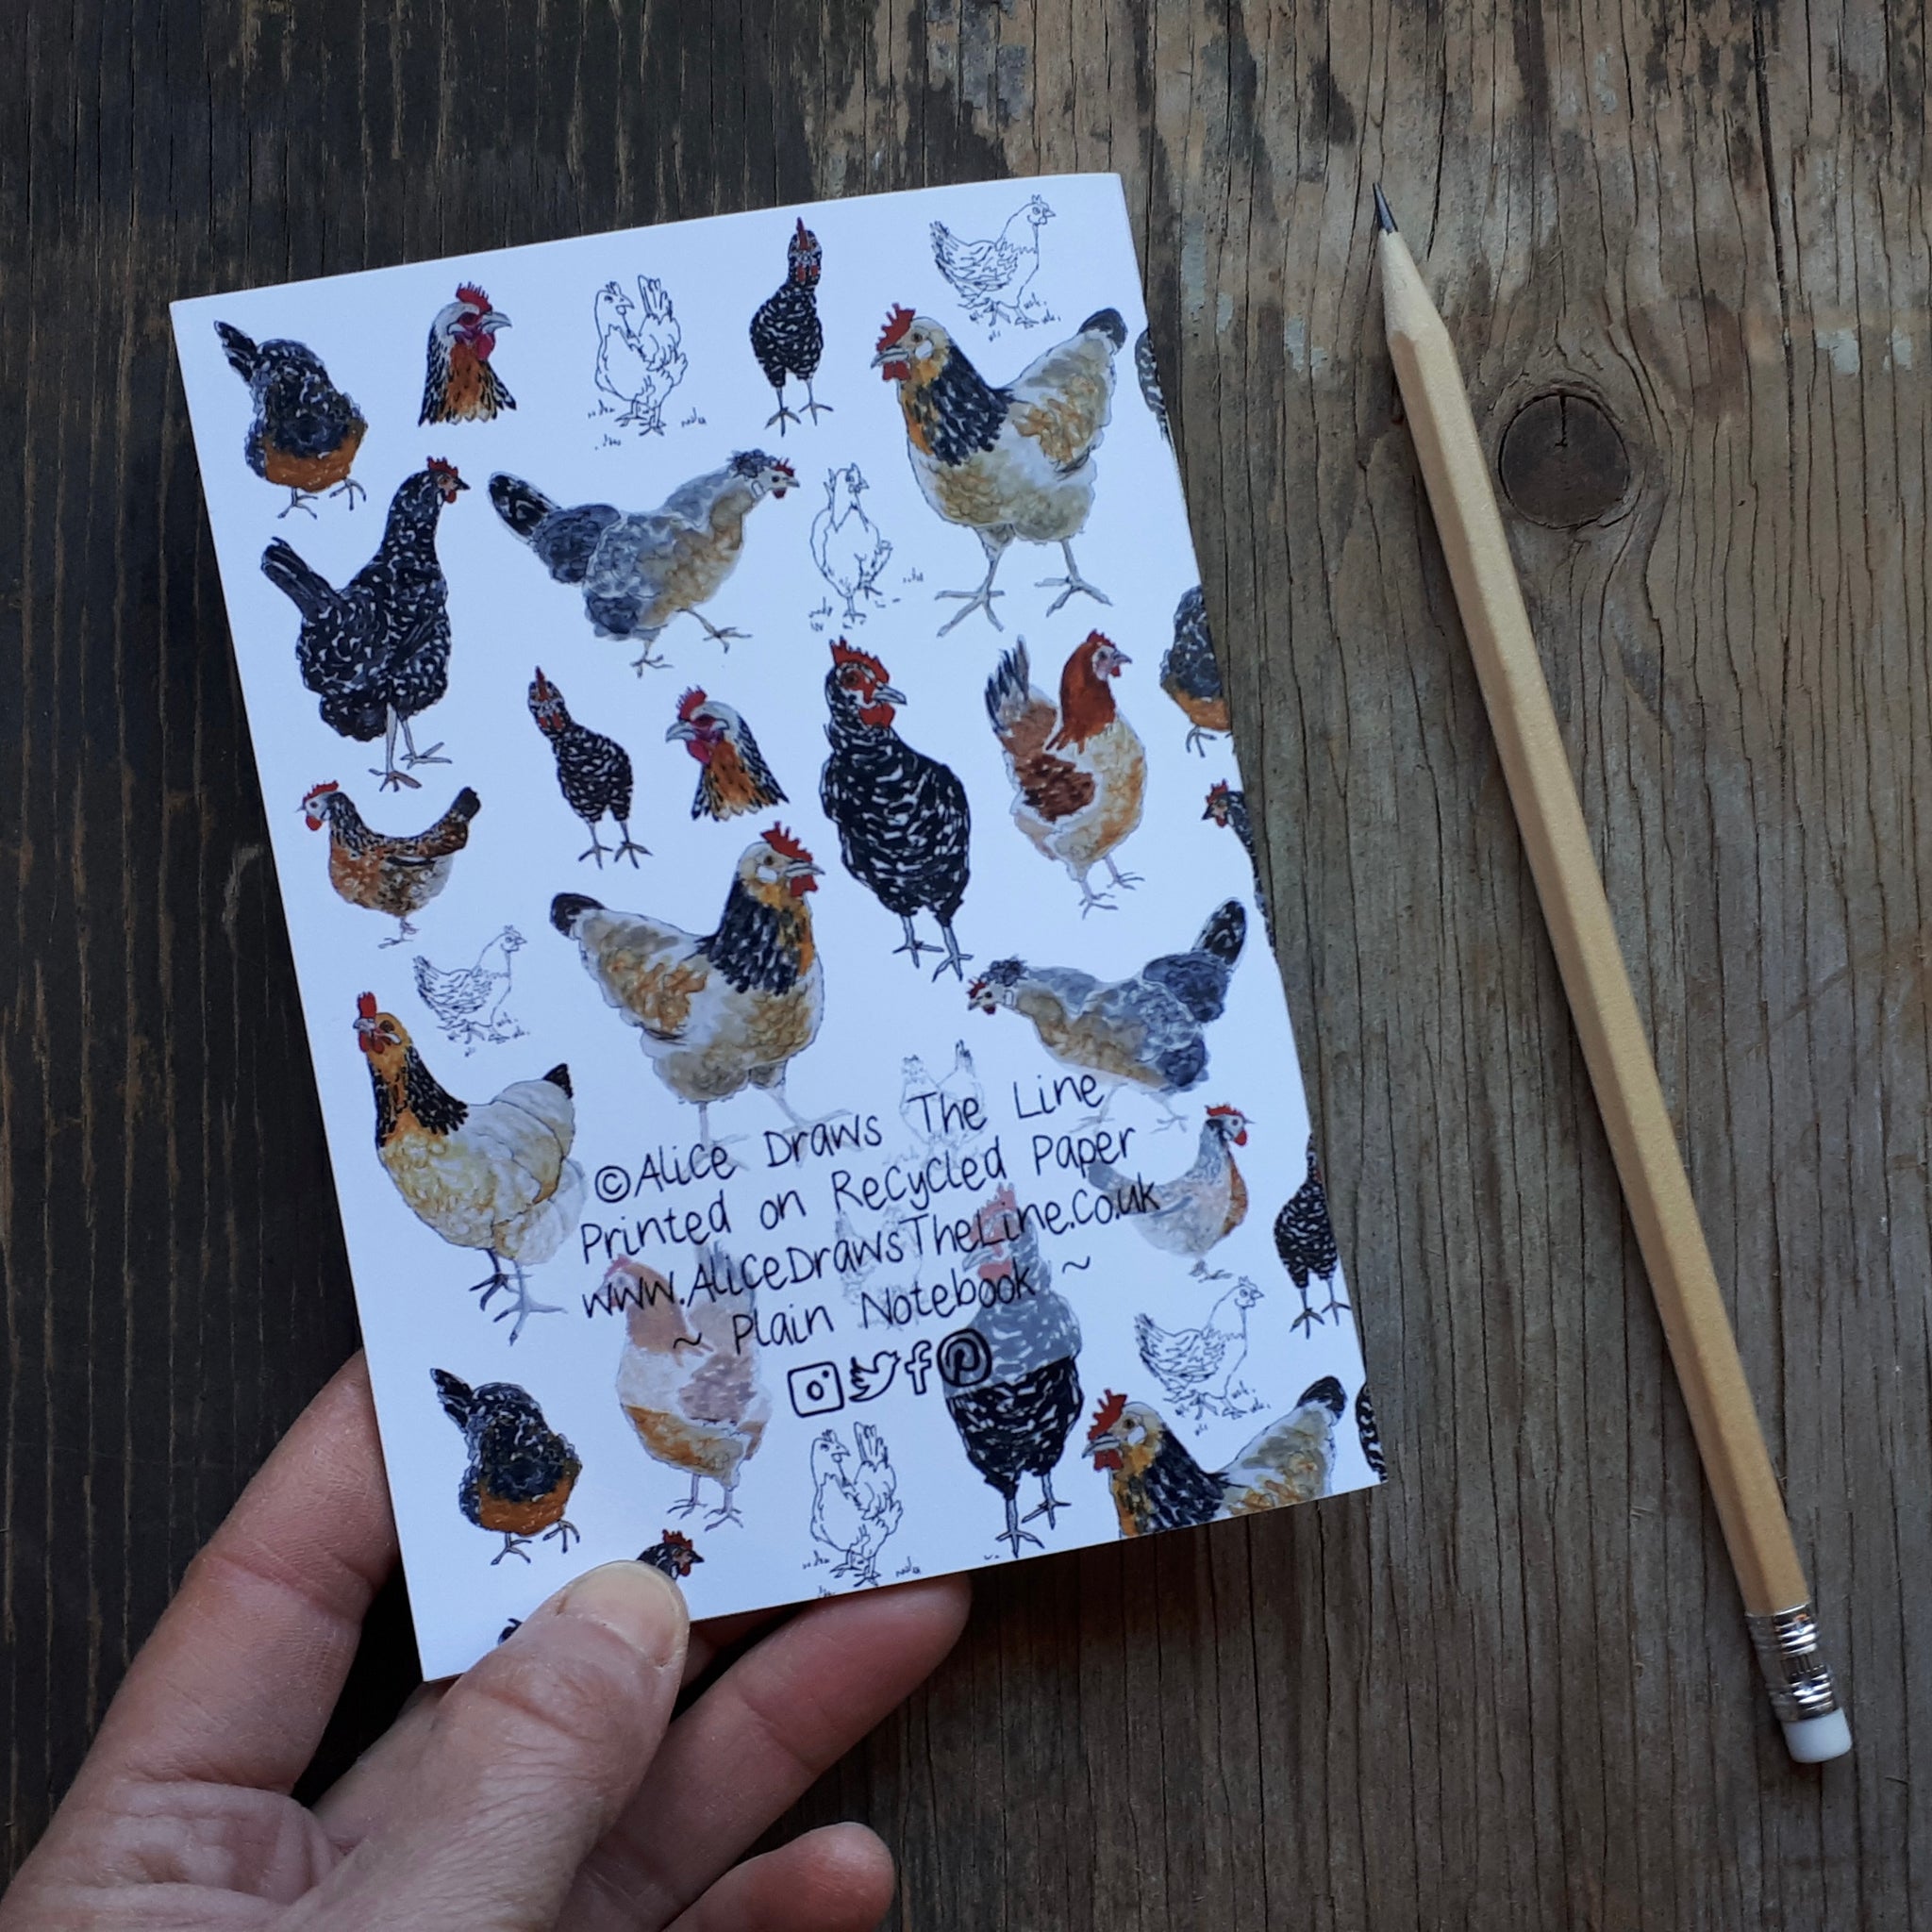 ©Alice Draws The Line
Printed on Recycled Paper
www.AliceDrawsTheLine.co.uk
~ Plain Notebook ~